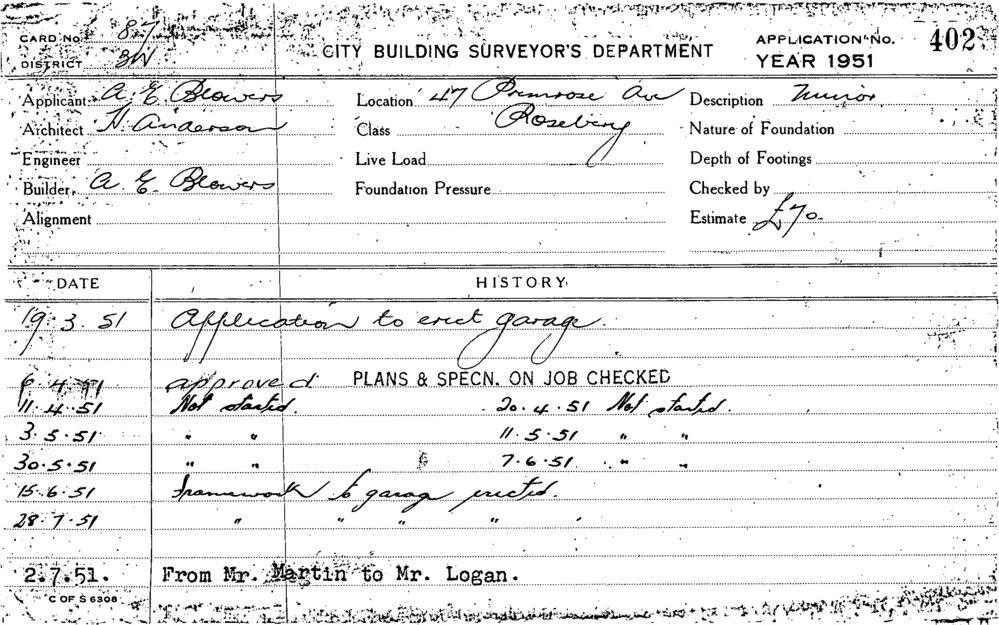 CARD No. 87
DISTRICT SW
CITY BUILDING SURVEYOR'S DEPARTMENT
APPLICATION No. 402
YEAR 1951
Applicant A. E. Blowers
Location 47 Primrose Av
Description Minor
Architect H. Anderson
Class Rosebery
Nature of Foundation
Engineer
Live Load
Depth of Footings
Builder A. E. Blowers
Foundation Pressure
Checked by
Alignment
Estimate £70
DATE HISTORY
19.3.51 Application to erect garage.
6.4.51 approved PLANS & SPECN. ON JOB CHECKED
11.4.51 Not started. 20.4.51 Not started.
3.5.51 " " 11.5.51 " "
30.5.51 " " 7.6.51 " "
15.6.51 Framework to garage erected.
28.7.51 " " " "
2.7.51. From Mr. Martin to Mr. Logan.
C OF S 6308